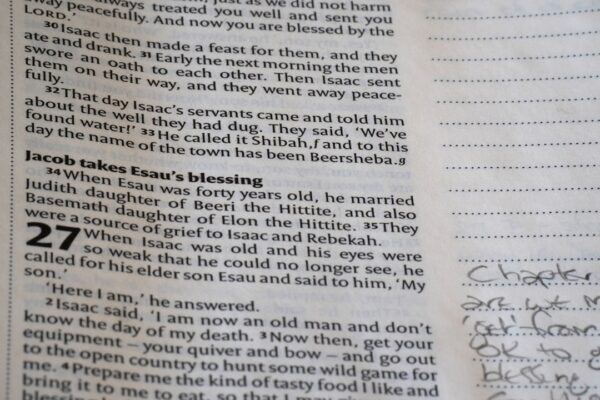 just as we did not harm
always treated you well and sent you
away peacefully. And now you are blessed by the
LORD.'
30 Isaac then made a feast for them, and they
ate and drank. 31 Early the next morning the men
swore an oath to each other. Then Isaac sent
them on their way, and they went away peace-
fully.
32 That day Isaac's servants came and told him
about the well they had dug. They said, 'We've
found water!' 33 He called it Shibah,f and to this
day the name of the town has been Beersheba.g
Jacob takes Esau's blessing
34 When Esau was forty years old, he married
Judith daughter of Beeri the Hittite, and also
Basemath daughter of Elon the Hittite. 35 They
were a source of grief to Isaac and Rebekah.
27 When Isaac was old and his eyes were
so weak that he could no longer see, he
called for his elder son Esau and said to him, 'My
son.'
'Here I am,' he answered.
2 Isaac said, 'I am now an old man and don't
know the day of my death. 3 Now then, get your
equipment – your quiver and bow – and go out
to the open country to hunt some wild game for
me. 4 Prepare me the kind of tasty food I like and
bring it to me to eat, so that I may
Chapter
are
'get' from
OK to g
blessing